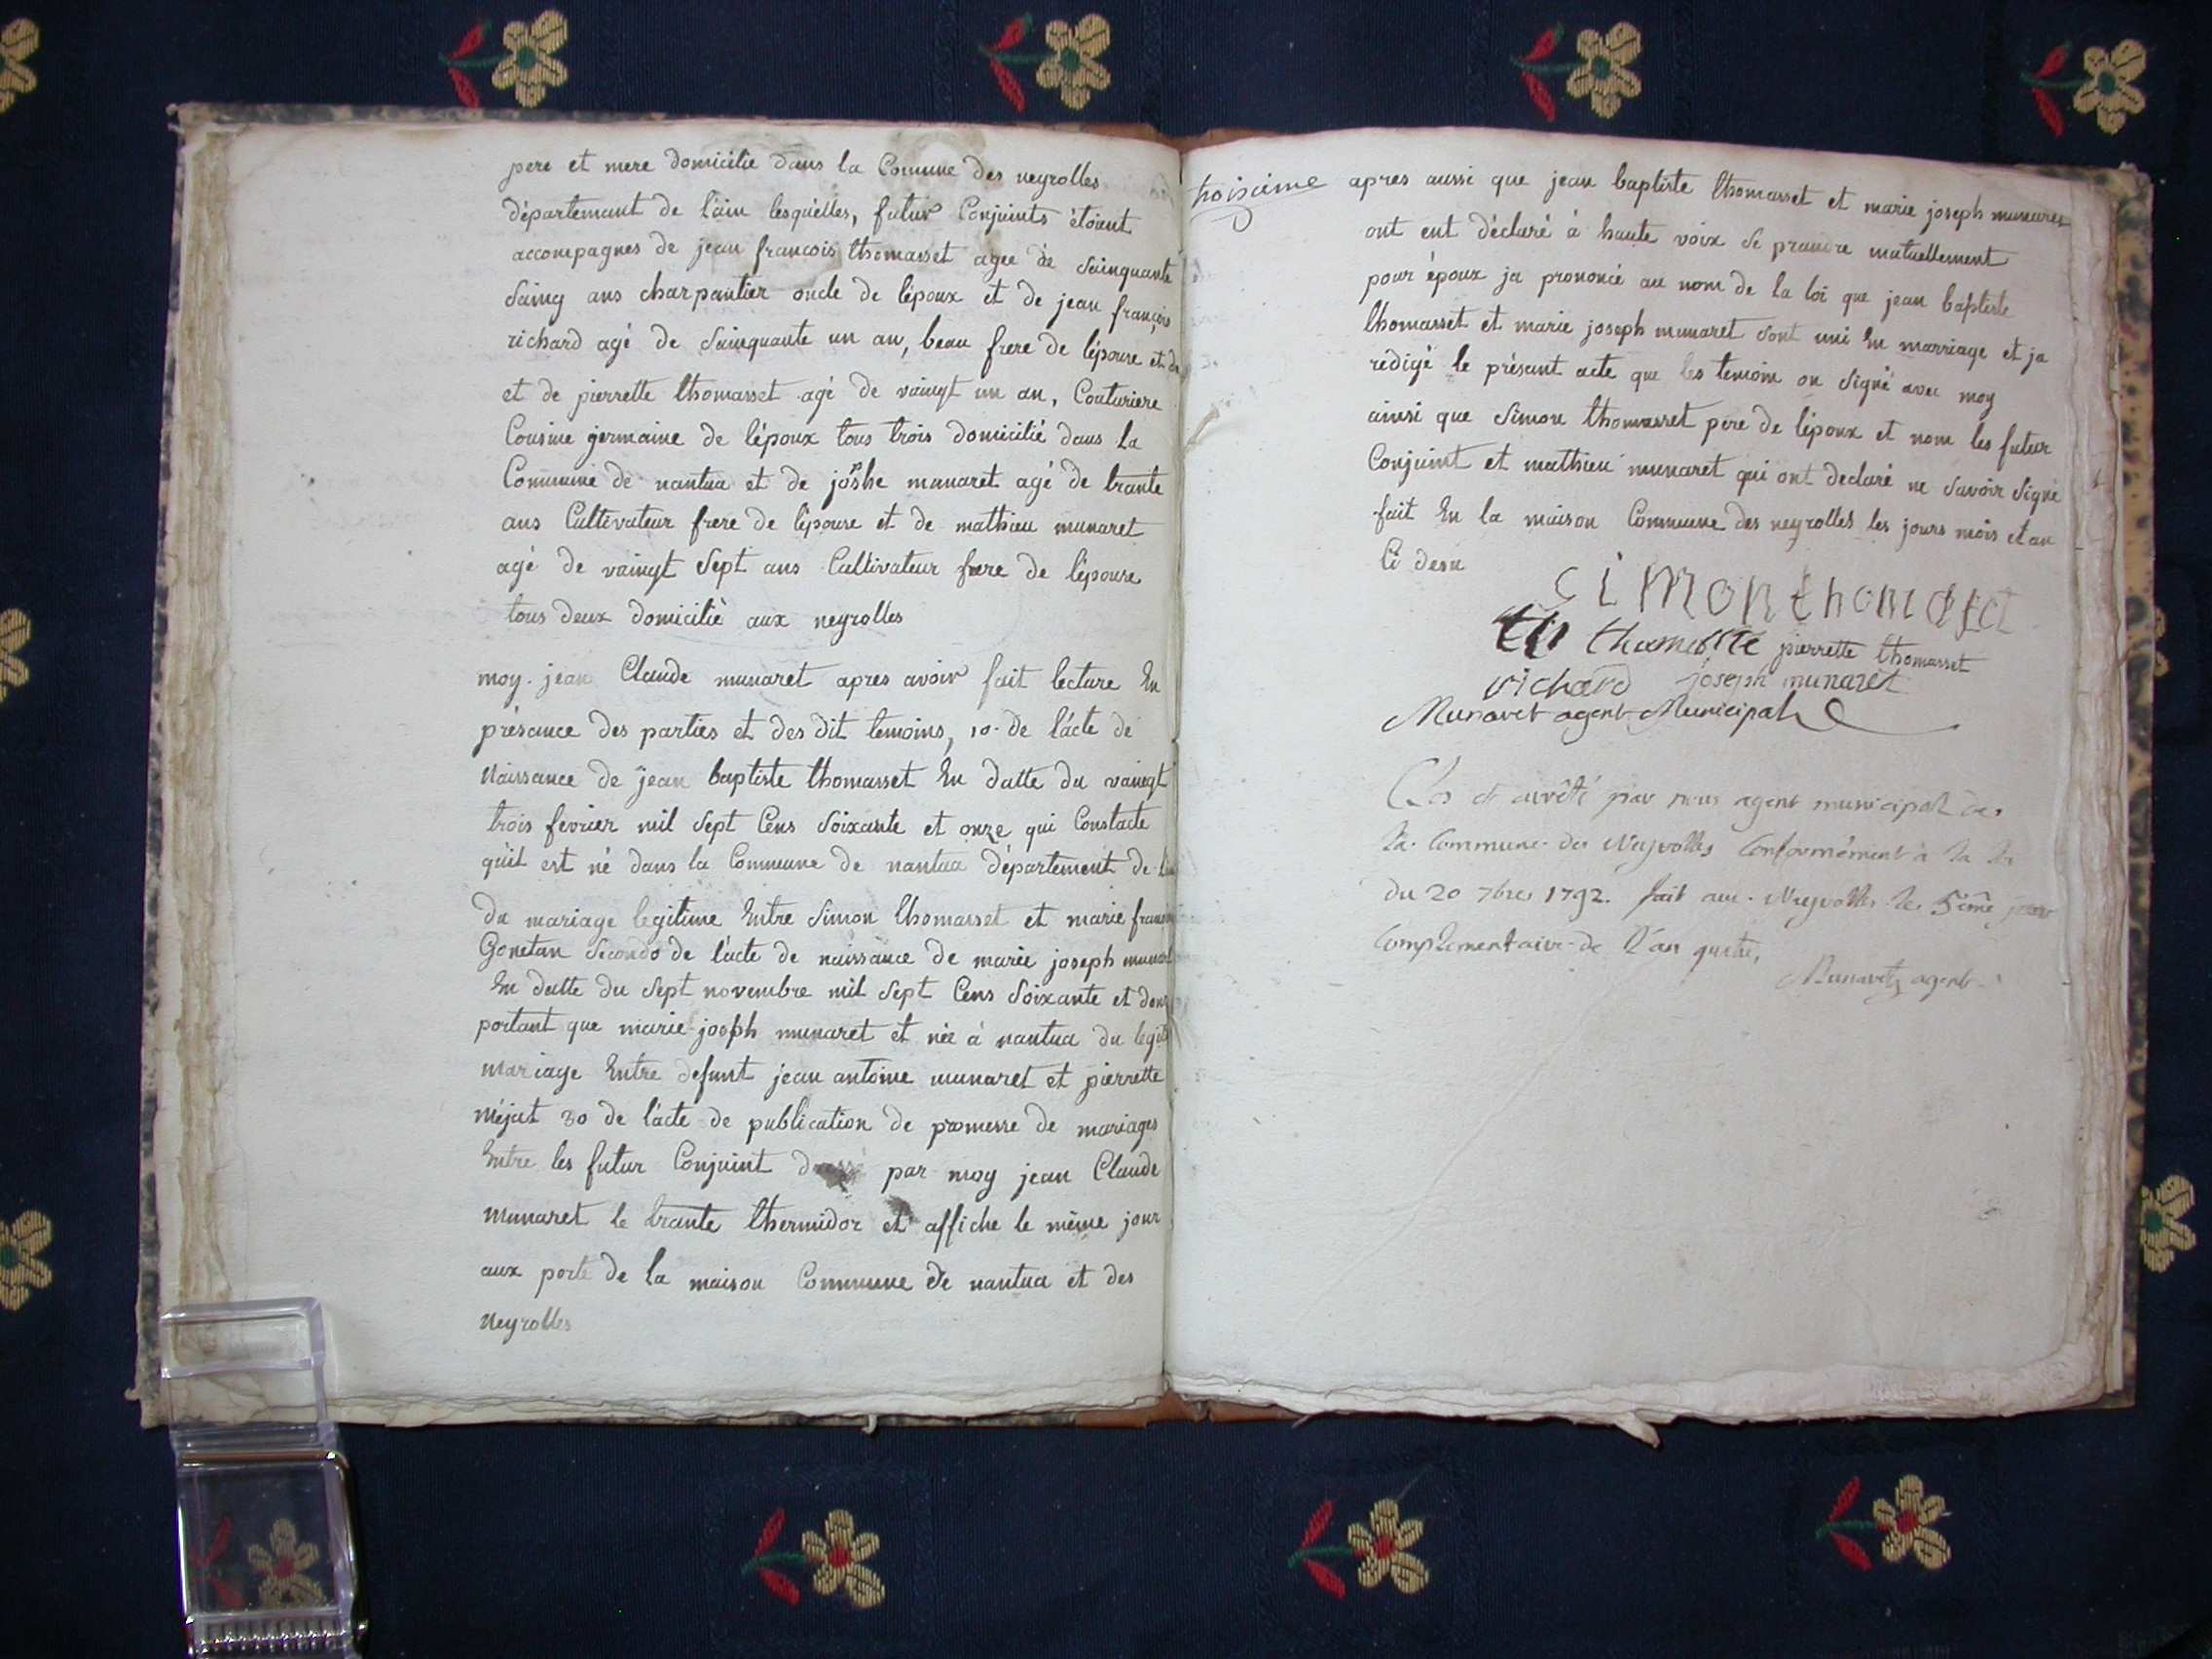 pere et mere domicilie dans la Comune des neyrolles
département de l'ain lesquelles, futur Conjoints étoient
accompagnes de jean francois thomasset agee de sainquante
saing ans charpantier oncle de lépoux et de jean françois
richard agé de sainquante un an, beau frere de lépouse et de
et de pierrette thomasset agé de vaingt un an, Couturiere
Cousine germaine de lépoux tous trois domicilié dans la
Commune de nantua et de josphe munaret agé de trante
ans Cultivateur frere de lépouse et de mathieu munaret
agé de vaingt sept ans Cultivateur frere de lépouse
tous deux domicilié aux neyrolles
moy. jean Claude munaret apres avoir fait lecture En
présance des parties et des dit temoins, 1o. de lácte de
Naissance de jean baptiste thomasset En datte du vaingt
trois fevrier mil sept Cens soixante et onze qui Constacte
qu'il est né dans la Commune de nantua département de
du mariage legitime Entre simon thomasset et marie
Gonetan secondo de lácte de naissance de marie joseph
En datte du sept novembre mil sept Cens soixante et
portant que marie joseph munaret et née à nantua du
mariage Entre defunt jean antoine munaret et pierrette
méjat 3o de lácte de publication de promesse de mariages
Entre les futur Conjoint par moy jean Claude
Munaret le trante thermidor et affiche le même jour
aux porte de la maison Commune de nantua et des
Neyrolles
troisième
apres aussi que jean baptiste thomasset et marie joseph munaret
ont ent déclaré à haute voix se prandre mutuellement
pour époux ja prononcé au nom de la loi que jean baptiste
thomasset et marie joseph munaret sont uni En marriage et ja
rédigé le présant acte que les temoin on signé avec moy
ainsi que simon thomasset pere de lépoux et nom les futur
Conjoint et mathieu munaret qui ont declaré ne savoir signé
fait En la maison Commune des neyrolles les jours mois et an
Ci desu
cimonthomaset
pierrette thomasset
richard joseph munaret
Munaret agent Municipal
Clos et arrêté par nous agent municipal de
la commune des Neyrolles Conformément à la loi
du 20 7bre 1792. fait aux Neyrolles le 5eme jour
Complementaire de l'an quatre,
Munaret agent